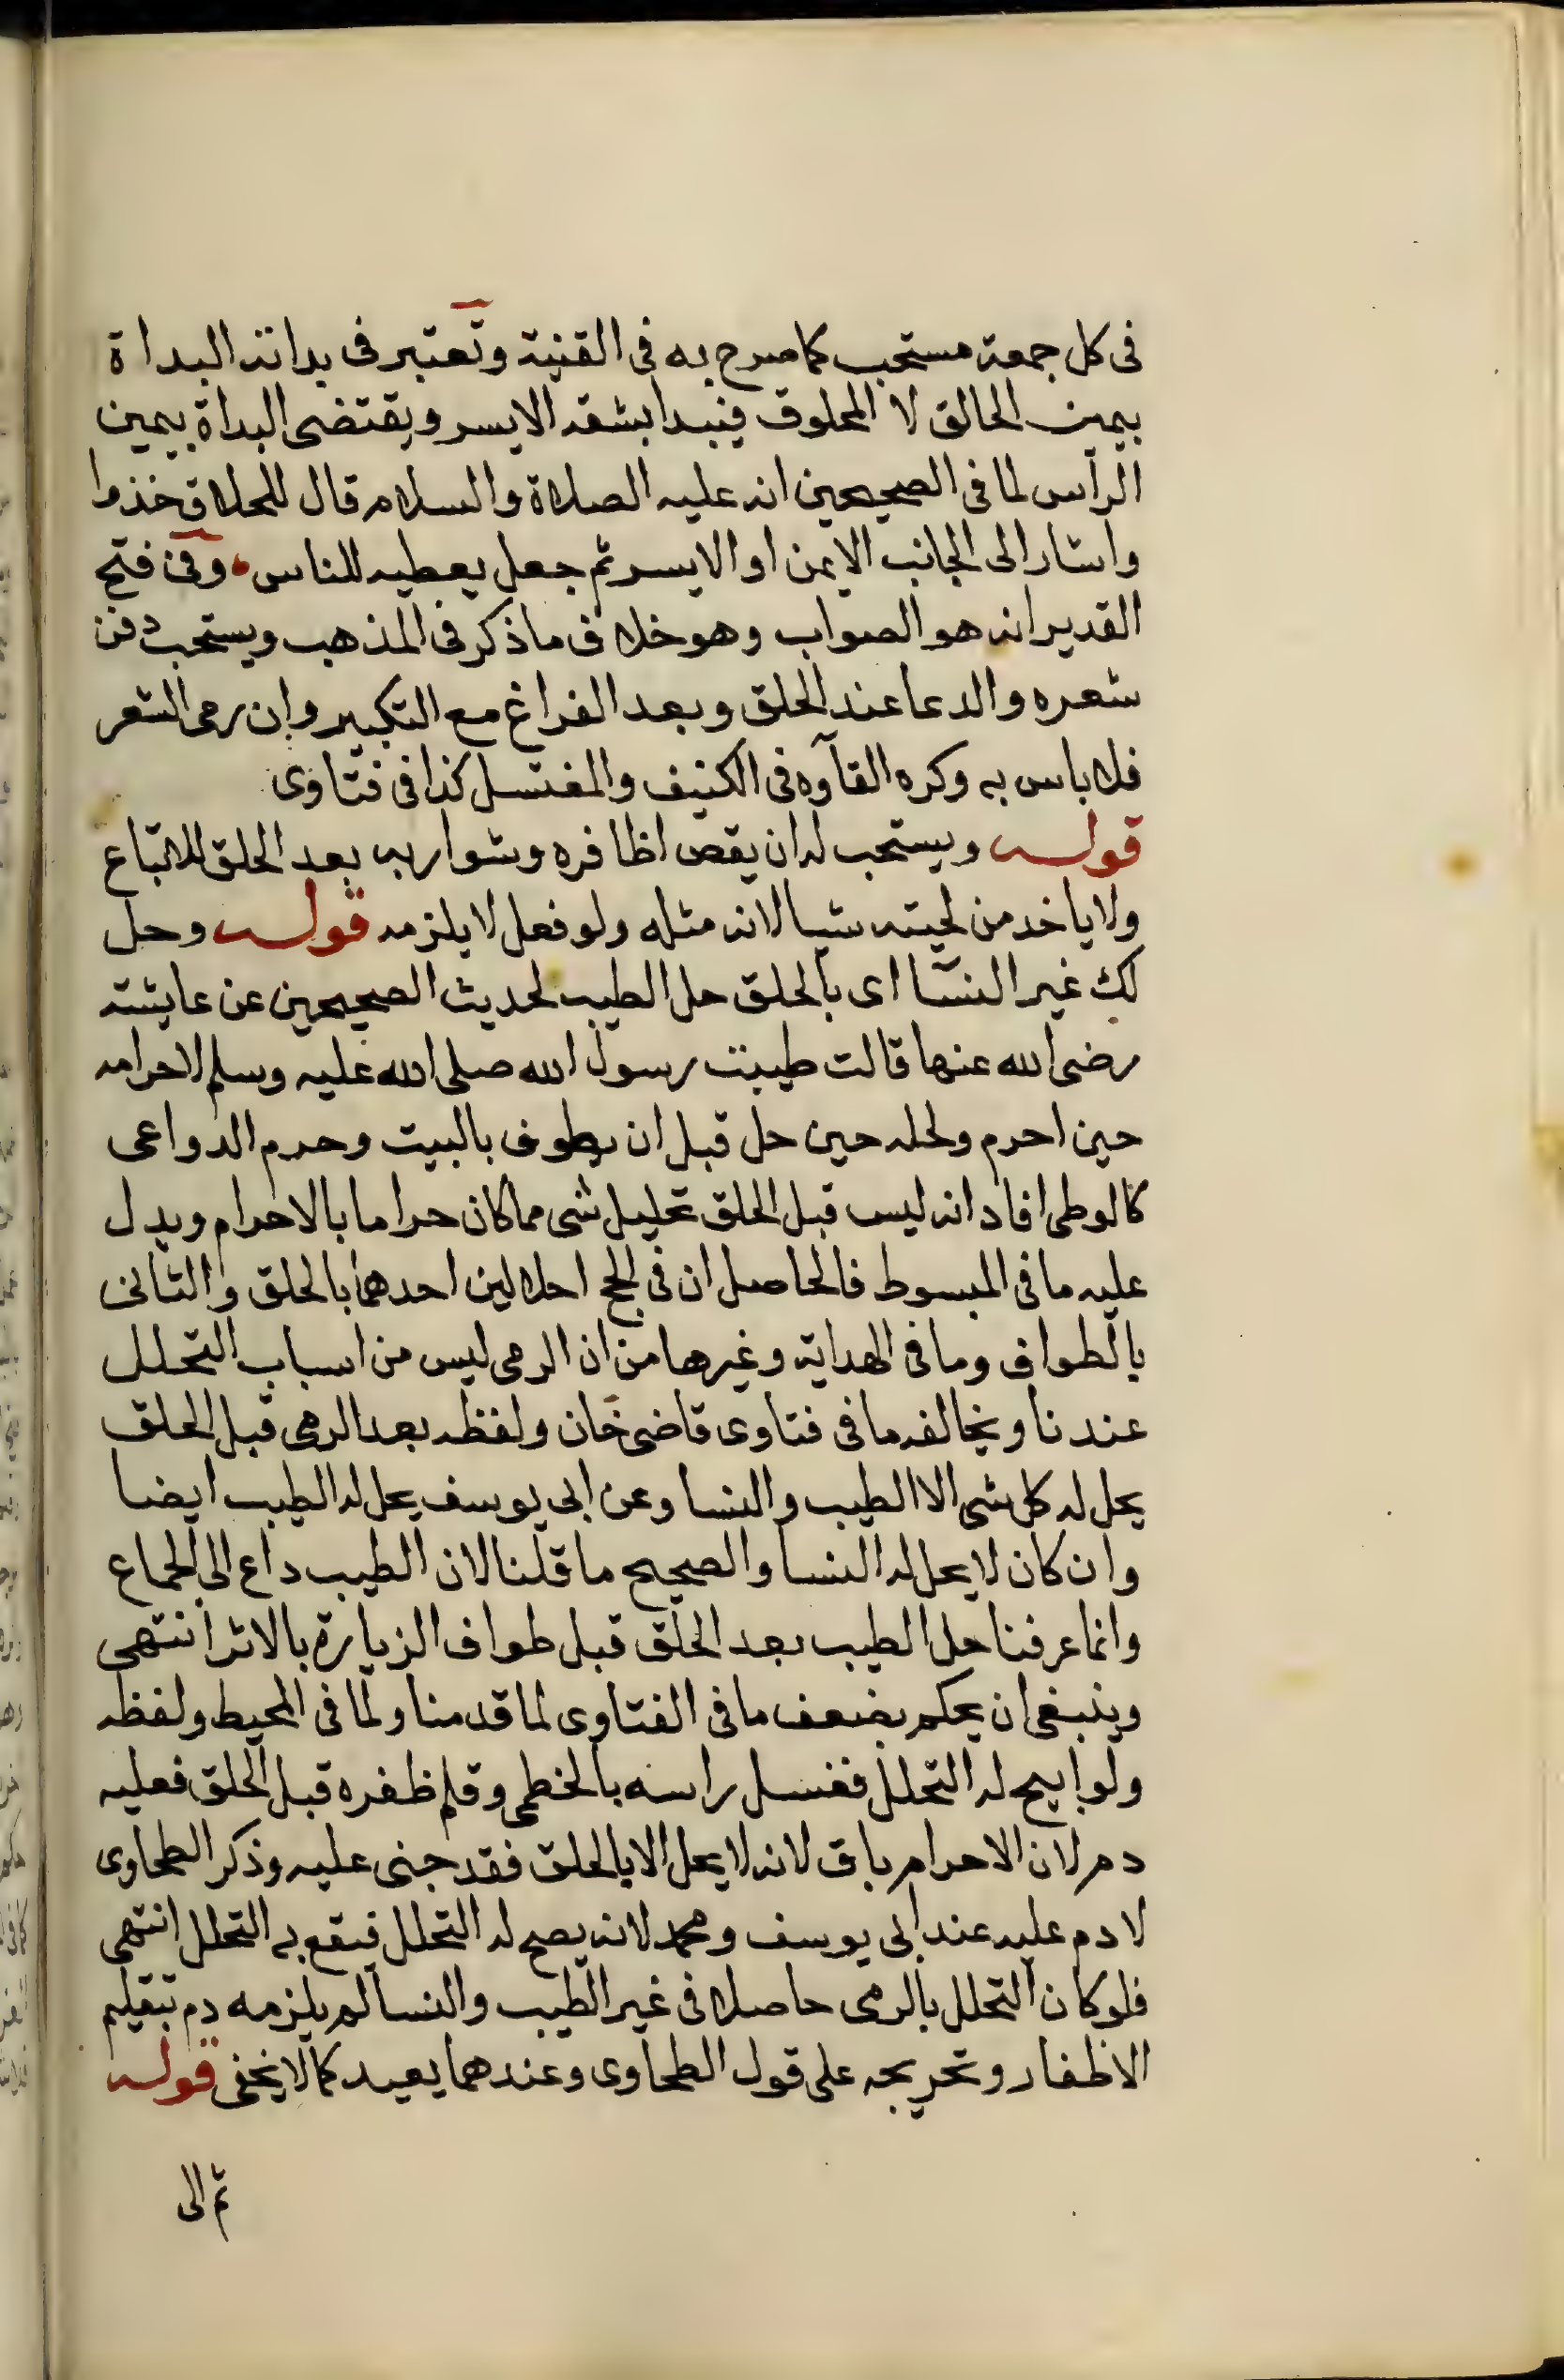 فى كل جمعة مستحب كما صرح به فى القنية وتعتبر فى بداته البداة
بيمين الحالق لا المحلوق فيبدا بشقه الايسر ويقتضى البداة بيمين
الراس لما فى الصحيحين انه عليه الصلاة والسلام قال للحلاق خذ وا
واشار الى الجانب الايمن او الايسر ثم جعل يعطيه للناس، وفى فتح
القدير انه هو الصواب وهو خلاف ما ذكر فى المذهب ويستحب دفن
شعره والدعا عند الحلق وبعد الفراغ مع التكبير وان رمى الشعر
فلا باس به وكره القآوه فى الكنيف والمغتسل كذا فى فتاوى
قوله ويستحب له ان يقص اظافره وشواربه بعد الحلق للاتباع
ولا ياخد من لحيته شيا لانه مثله ولو فعل لا يلزمه قوله وحل
لك غير النسآ اى بالحلق حل الطيب لحديث الصحيحين عن عايشة
رضى الله عنها قالت طيبت رسول الله صلى الله عليه وسلم لاحرامه
حين احرم ولحله حين حل قبل ان يطوف بالبيت وحرم الدواعى
كالوطى افاد انه ليس قبل الحلق تحليل شى مما كان حراما بالاحرام ويدل
عليه ما فى المبسوط فالحاصل ان فى الحج احلالين احدهما بالحلق والثانى
بالطواف وما فى الهداية وغيرها من ان الرمى ليس من اسباب التحلل
عندنا ويخالفه ما فى فتاوى قاضى خان ولفظه بعد الرمى قبل الحلق
يحل له كل شى الا الطيب والنسا وعن ابى يوسف يحل له الطيب ايضا
وان كان لا يحل له النسا والصحيح ما قلنا لان الطيب داع الى الجماع
وانما عرفنا حل الطيب بعد الحلق قبل طواف الزيارة بالاثر انتهى
وينبغى ان يحكم بضعف ما فى الفتاوى لما قدمنا ولما فى المحيط ولفظه
ولو ابيح له التحلل فغسل راسه بالخطمى وقلم ظفره قبل الحلق فعليه
دم لان الاحرام باق لانه لا يحل الا بالحلق فقد جنى عليه وذكر الطحاوى
لا دم عليه عند ابى يوسف ومحمد لانه يصح له التحلل فيقع به التحلل انتهى
فلو كان التحلل بالرمى حاصلا فى غير الطيب والنسا لم يلزمه دم بتقليم
الاظفار وتخريجه على قول الطحاوى وعندهما بعيد كما لا يخفى قوله
ثم الى